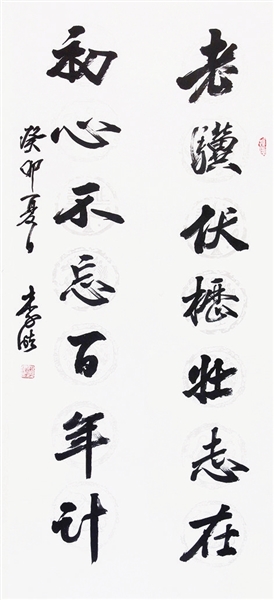 老驥伏櫪壮志在
初心不忘百年计
癸卯夏日 李